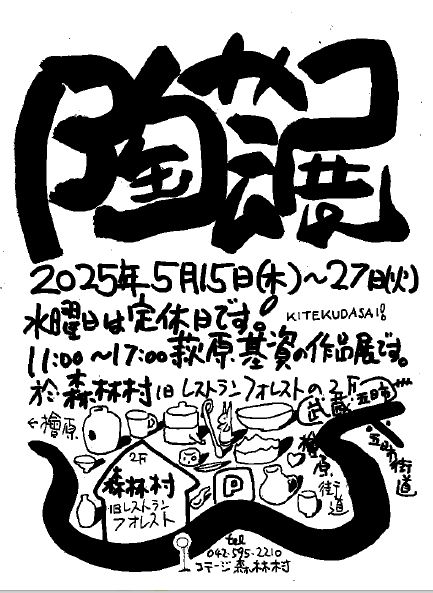 陶芸展
2025年5月15日(木)～27日(火)
水曜日は定休日です。
KITEKUDASAI!!
11:00～17:00萩原基資の作品展です。
於・森林村旧レストランフォレストの2F
←檜原
武蔵五日市
五日市街道
檜原街道
2F
森林村
旧レストラン
フォレスト
P
tel
042-595-2210
コテージ森林村